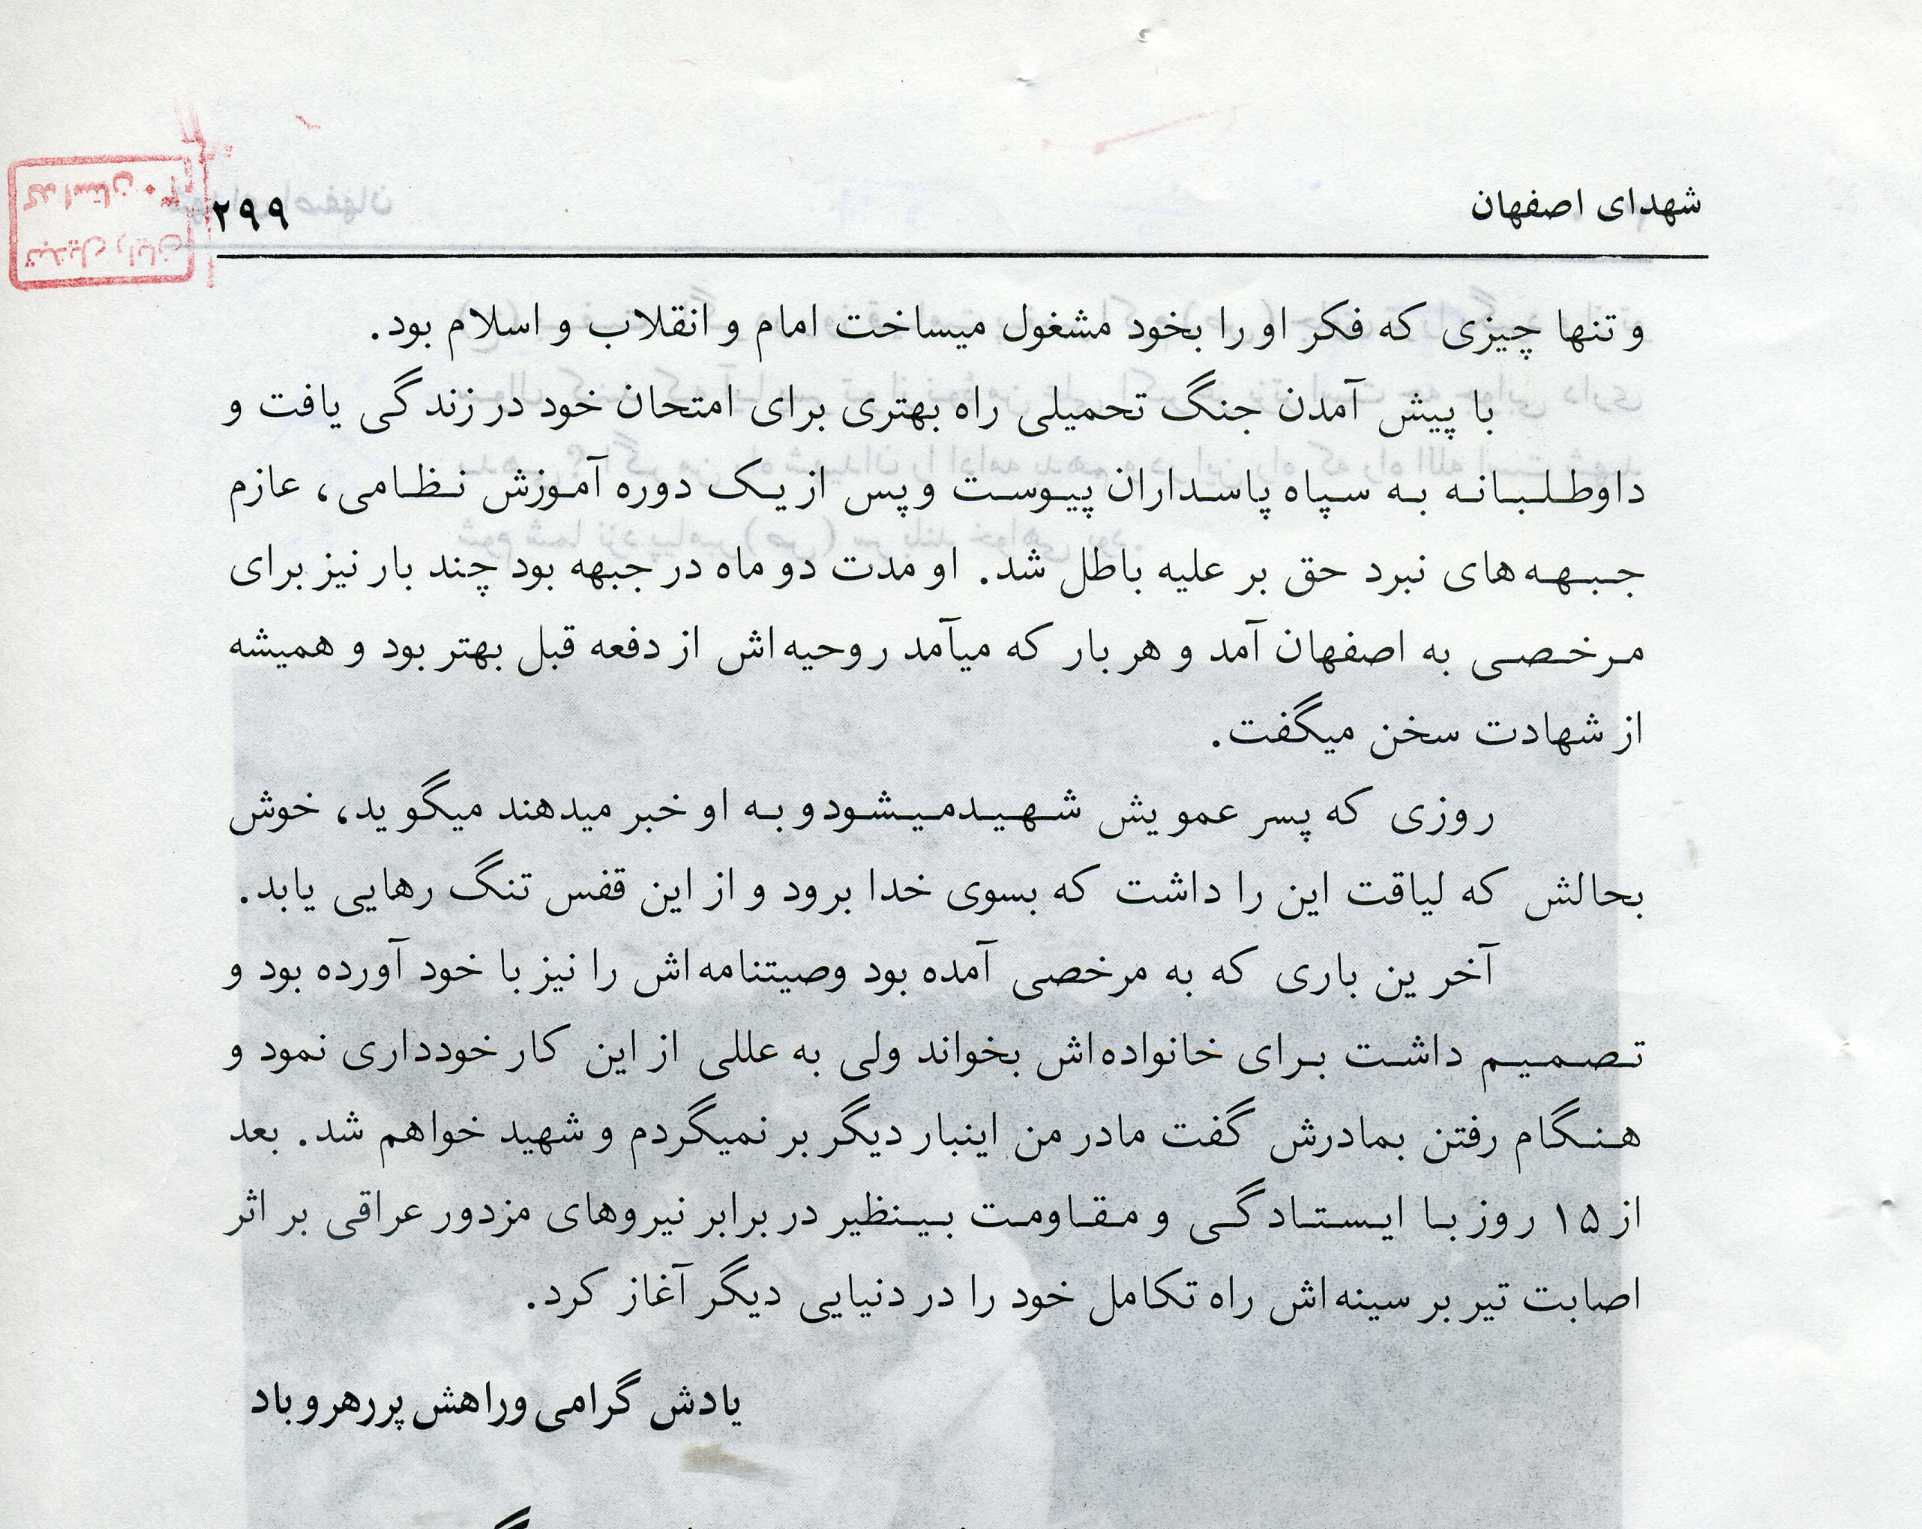 شهدای اصفهان
۲۹۹
و تنها چیزی که فکر او را بخود مشغول میساخت امام و انقلاب و اسلام بود.
با پیش آمدن جنگ تحمیلی راه بهتری برای امتحان خود در زندگی یافت و
داوطلبانه به سپاه پاسداران پیوست و پس از یک دوره آموزش نظامی، عازم
جبهه‌های نبرد حق بر علیه باطل شد. او مدت دو ماه در جبهه بود چند بار نیز برای
مرخصی به اصفهان آمد و هر بار که میآمد روحیه‌اش از دفعه قبل بهتر بود و همیشه
از شهادت سخن میگفت.
روزی که پسر عمویش شهیدمیشود و به او خبر میدهند میگوید، خوش
بحالش که لیاقت این را داشت که بسوی خدا برود و از این قفس تنگ رهایی یابد.
آخرین باری که به مرخصی آمده بود وصیتنامه‌اش را نیز با خود آورده بود و
تصمیم داشت برای خانواده‌اش بخواند ولی به عللی از این کار خودداری نمود و
هنگام رفتن بمادرش گفت مادر من اینبار دیگر بر نمیگردم و شهید خواهم شد. بعد
از ۱۵ روز با ایستادگی و مقاومت بینظیر در برابر نیروهای مزدور عراقی بر اثر
اصابت تیر بر سینه‌اش راه تکامل خود را در دنیایی دیگر آغاز کرد.
یادش گرامی و راهش پررهرو باد
کد استان ۳۰